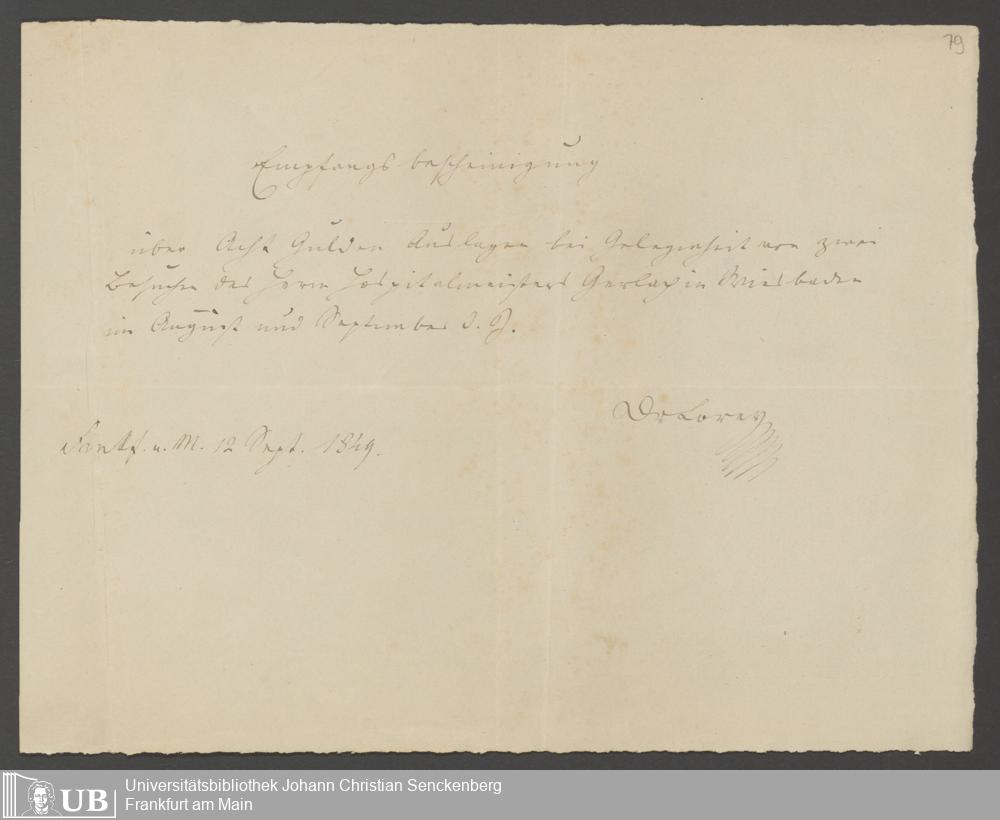 79
Empfangsbescheinigung
über Acht Gulden Auslagen bei Gelegenheit von zwei
Besuchen des Herrn Hospitalmeisters Gerlach in Wiesbaden
im August und September d. J.
Dr Lorey
Frankf. a. M. 12 Sept. 1849.
UB
Universitätsbibliothek Johann Christian Senckenberg
Frankfurt am Main